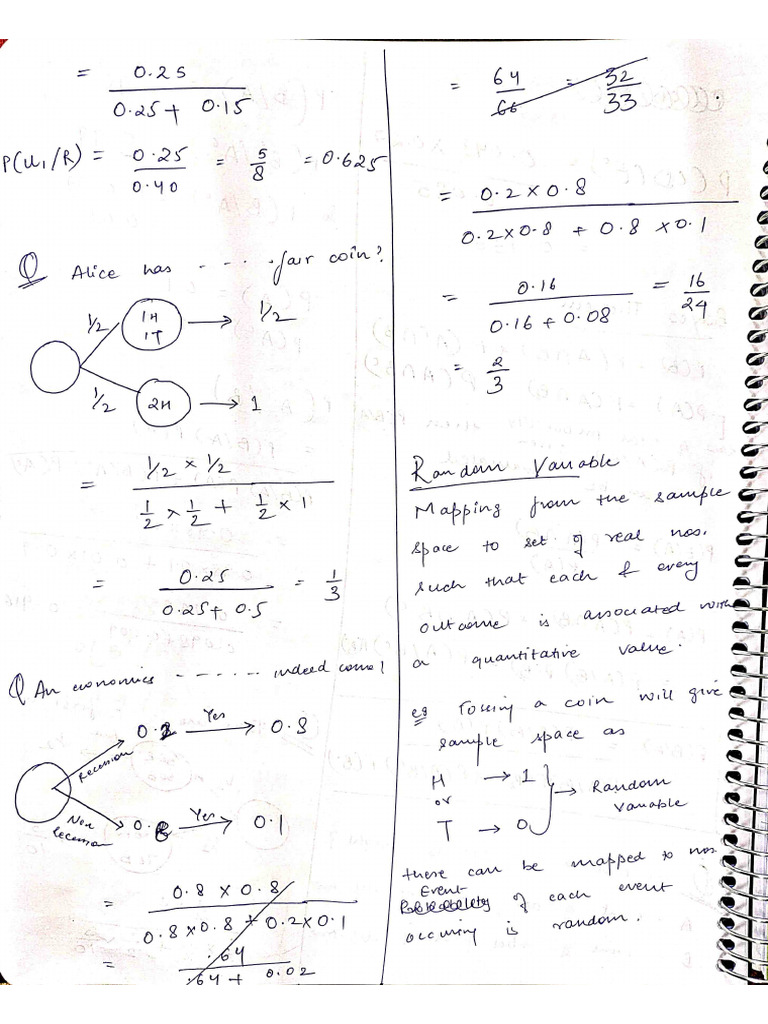 = 0.25 / 0.25 + 0.15
P(U₁/R) = 0.25 / 0.40 = 5/8 = 0.625
Q Alice has - - - - . fair coin?
1/2 1H 1T → 1/2
1/2 2H → 1
= 1/2 × 1/2 / 1/2 × 1/2 + 1/2 × 1
= 0.25 / 0.25 + 0.5 = 1/3
Q An economics - - - - - - indeed come?
Recession 0.2 Yes → 0.8
Non Recession 0.8 Yes → 0.1
= 0.8 × 0.8 / 0.8×0.8 + 0.2×0.1
= .64 / .64 + 0.02
= 64/66 = 32/33
= 0.2 × 0.8 / 0.2×0.8 + 0.8 × 0.1
= 0.16 / 0.16 + 0.08 = 16/24
= 2/3
Random Variable
Mapping from the sample
space to set of real nos.
such that each & every
outcome is associated with
a quantitative value.
eg Tossing a coin will give
sample space as
H → 1
or → Random Variable
T → 0
these can be mapped to nos.
Event
Probability of each event
occuring is random.